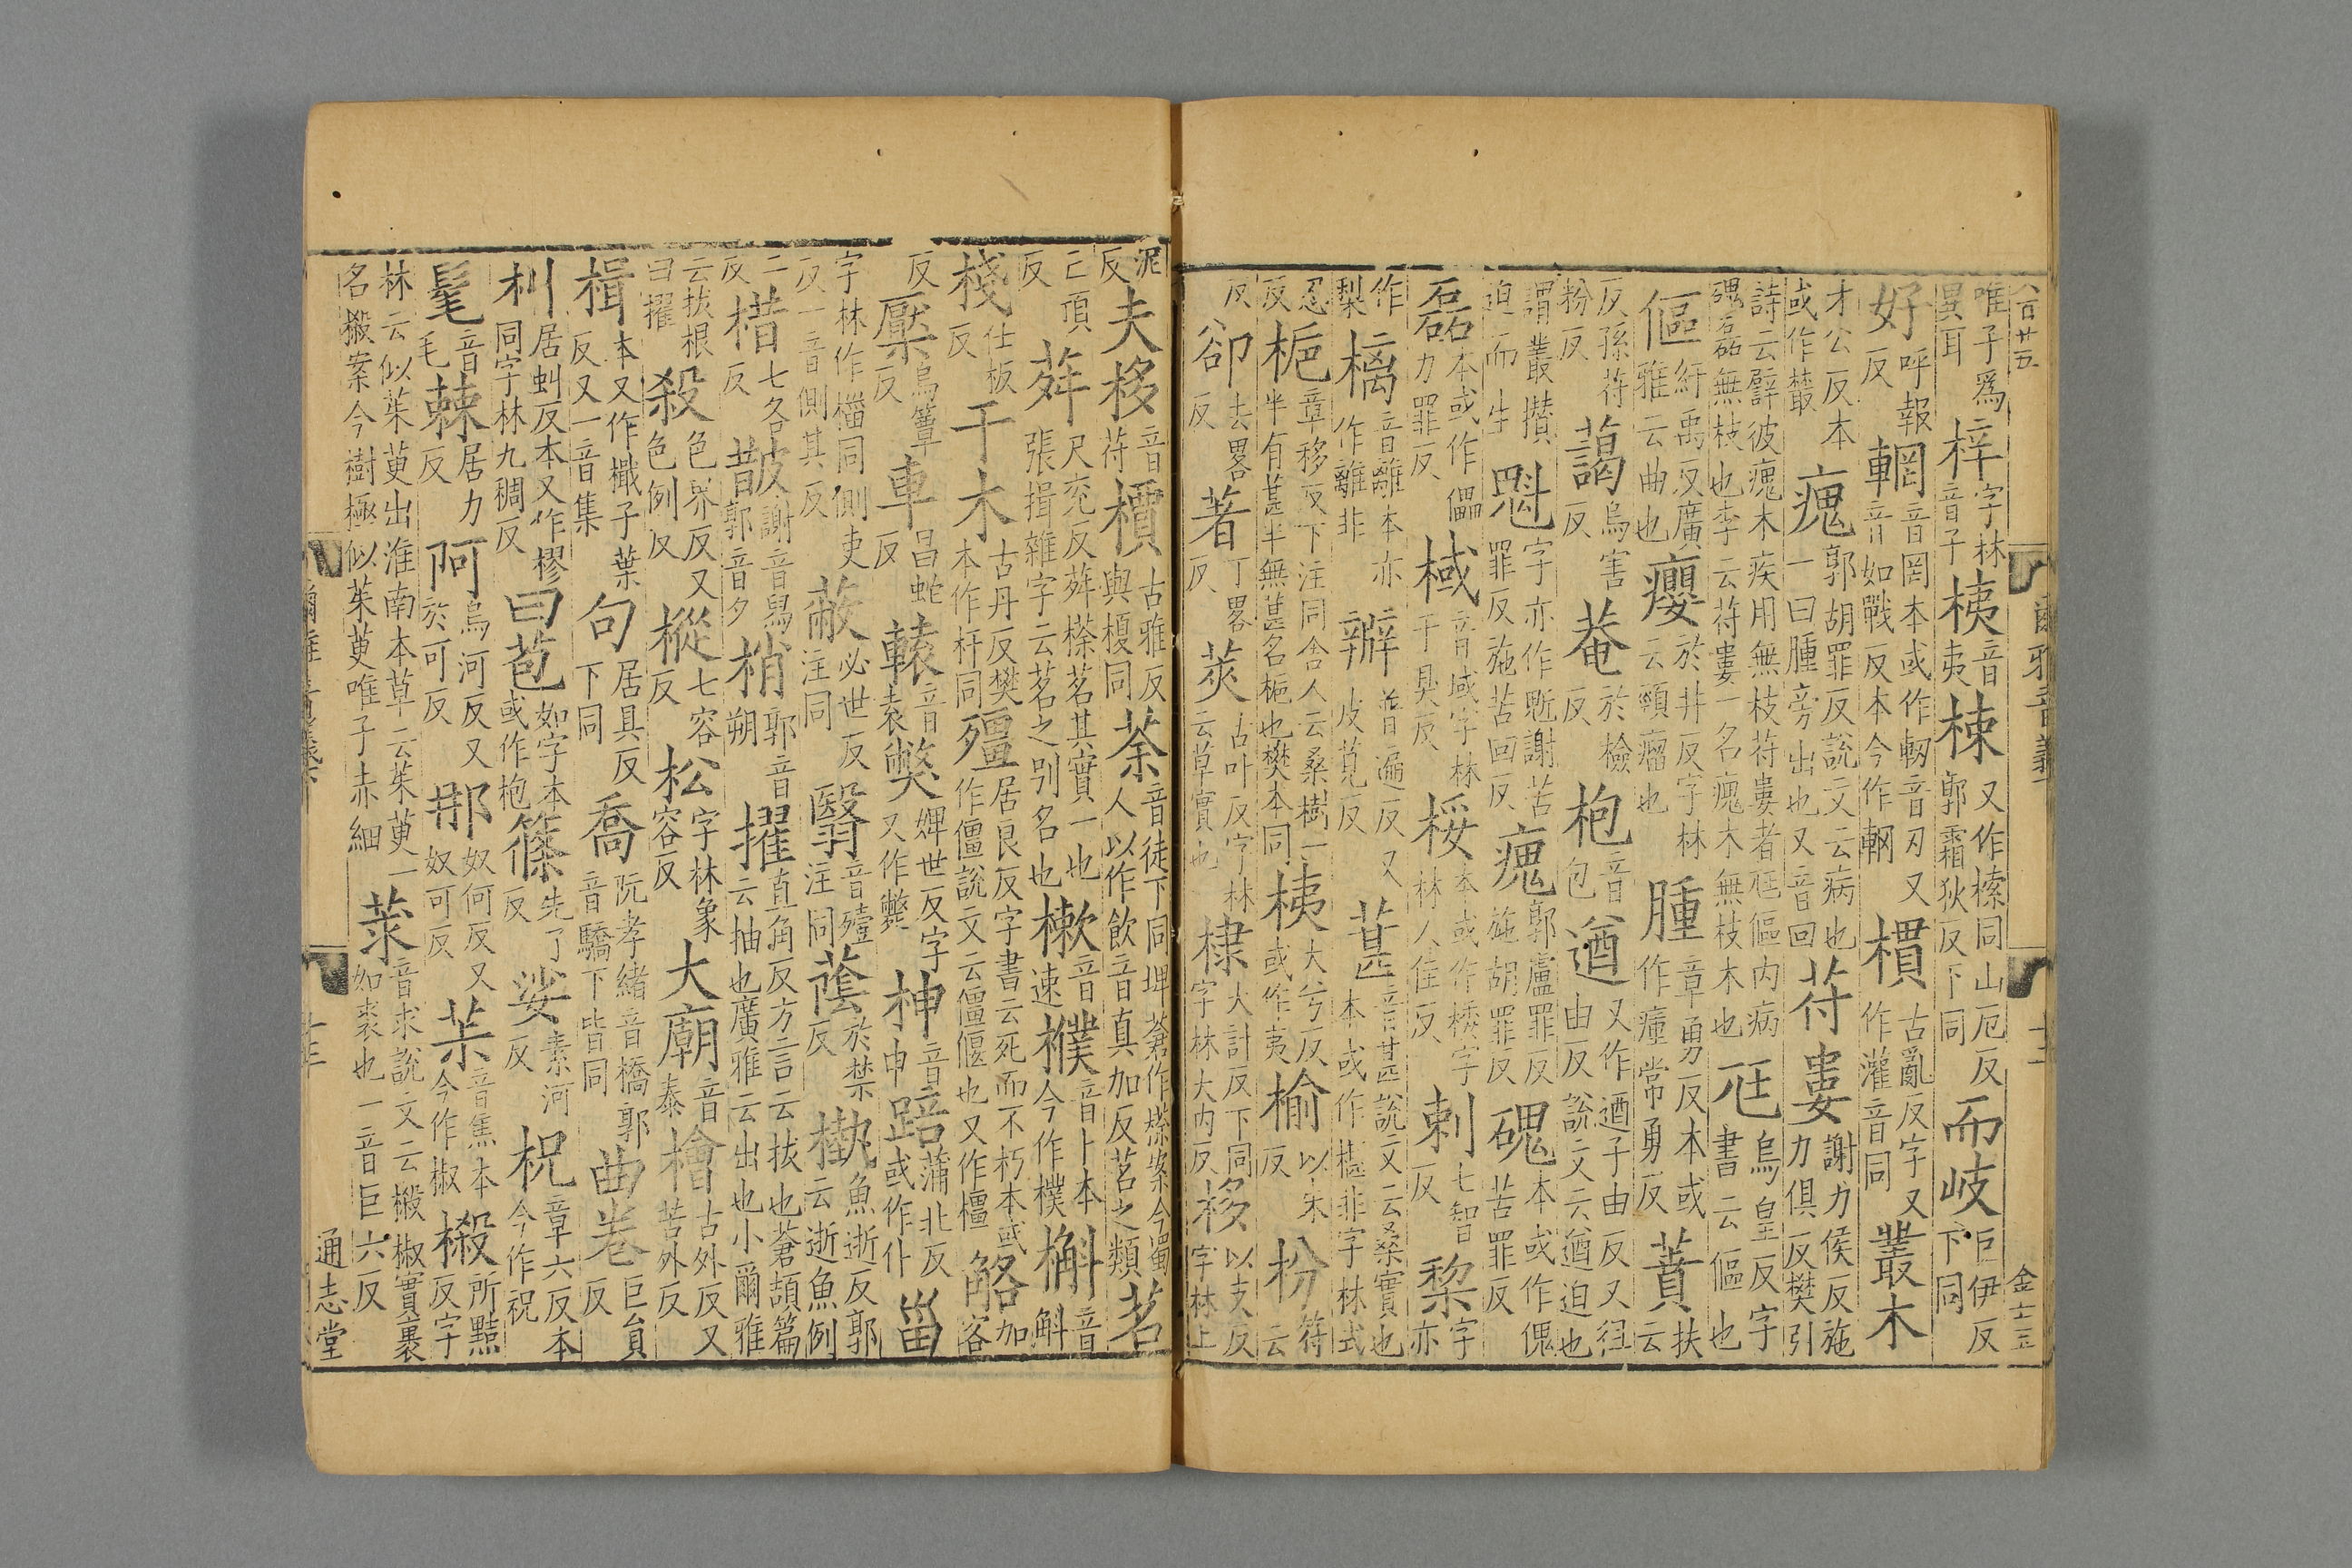 八百廿五 爾雅音義下 十三 金士玉
唯子爲異耳梓字林音子桋音夷楝又作樕同山厄反郭霜狄反下同而岐巨伊反下同
好呼報反輞音罔本或作䡊音刃又音如戰反本今作輞樌古亂反字又作灌音同叢木
才公反本或作藂瘣郭胡罪反說文云病也一曰腫旁出也又音回苻婁謝力侯反施力俱反樊引
詩云譬彼瘣木疾用無枝苻婁者尫傴内病磈磊無枝也李云苻婁一名瘣木無枝木也尫烏皇反字書云傴也
傴紆禹反廣雅云曲也癭於井反字林云頸瘤也腫章勇反本或作瘇常勇反蕡扶云
反孫苻粉反藹烏害反菴於檢反枹音包遒又作逎子由反又徂由反說文云遒迫也
謂叢攢迫而生魁字亦作謝苦罪反施苦回反瘣郭盧罪反施胡罪反磈本或作傀苦罪反
磊本或作儡力罪反棫音域字林于臭反桵本或作㮃字林人隹反刺七智反棃字亦
作梨樆音離本亦作離非辧普遍反又皮莧反葚音甚說文云桑實也本或作椹非字林式
忍反梔章移反下注同舍人云桑樹一半有葚半無葚名梔也樊本同桋大兮反或作夷榆以朱反枌符云
反卻去畧反著丁畧反莢古叶反字林云草實也棣大計反下同字林大内反栘以支反字林上
泥反夫栘音苻檟古雅反與榎同荼音徒下同埤蒼作㯆案今蜀人以作飲音真加反茗之類茗
亡頂反荈尺兖反荈㯆茗其實一也張揖雜字云茗之别名也樕音速樸音卜本今作樸槲音斛
棧仕板反干木古丹反樊本作杆同殭居良反字書云死而不朽本或作僵說文云僵偃也又作橿䚯加客
反檿烏簟反車昌蛇反轅音袁獘婢世反字又作斃神音申踣蒲北反或作仆甾
字林作椔同側吏反一音側其反蔽必世反注同翳音殪注同蔭於禁反槸魚逝反郭云逝魚例
二反棤七各反皵謝音舄郭音夕梢郭音朔擢直角反方言云拔也蒼頡篇云抽也廣雅云出也小爾雅
云拔根曰擢殺色界反又色例反樅七容反松字林象容反大廟音泰檜古外反又苦外反
楫本又作檝子葉反又一音集句居具反下同喬阮孝緒音橋郭音驕下皆同曲卷巨員反
朻居虯反本又作樛同字林九稠反曰苞如字本或作枹篠先了反娑素河反柷章六反本今作祝
髦音毛棘居力反阿烏河反又於可反那奴何反又奴可反茮音焦本今作椒榝所黠反字
林云似茱萸出淮南本草云茱萸一名榝案今樹極似茱萸唯子赤細莍音求說文云榝椒實裹如裘也一音巨六反
通志堂